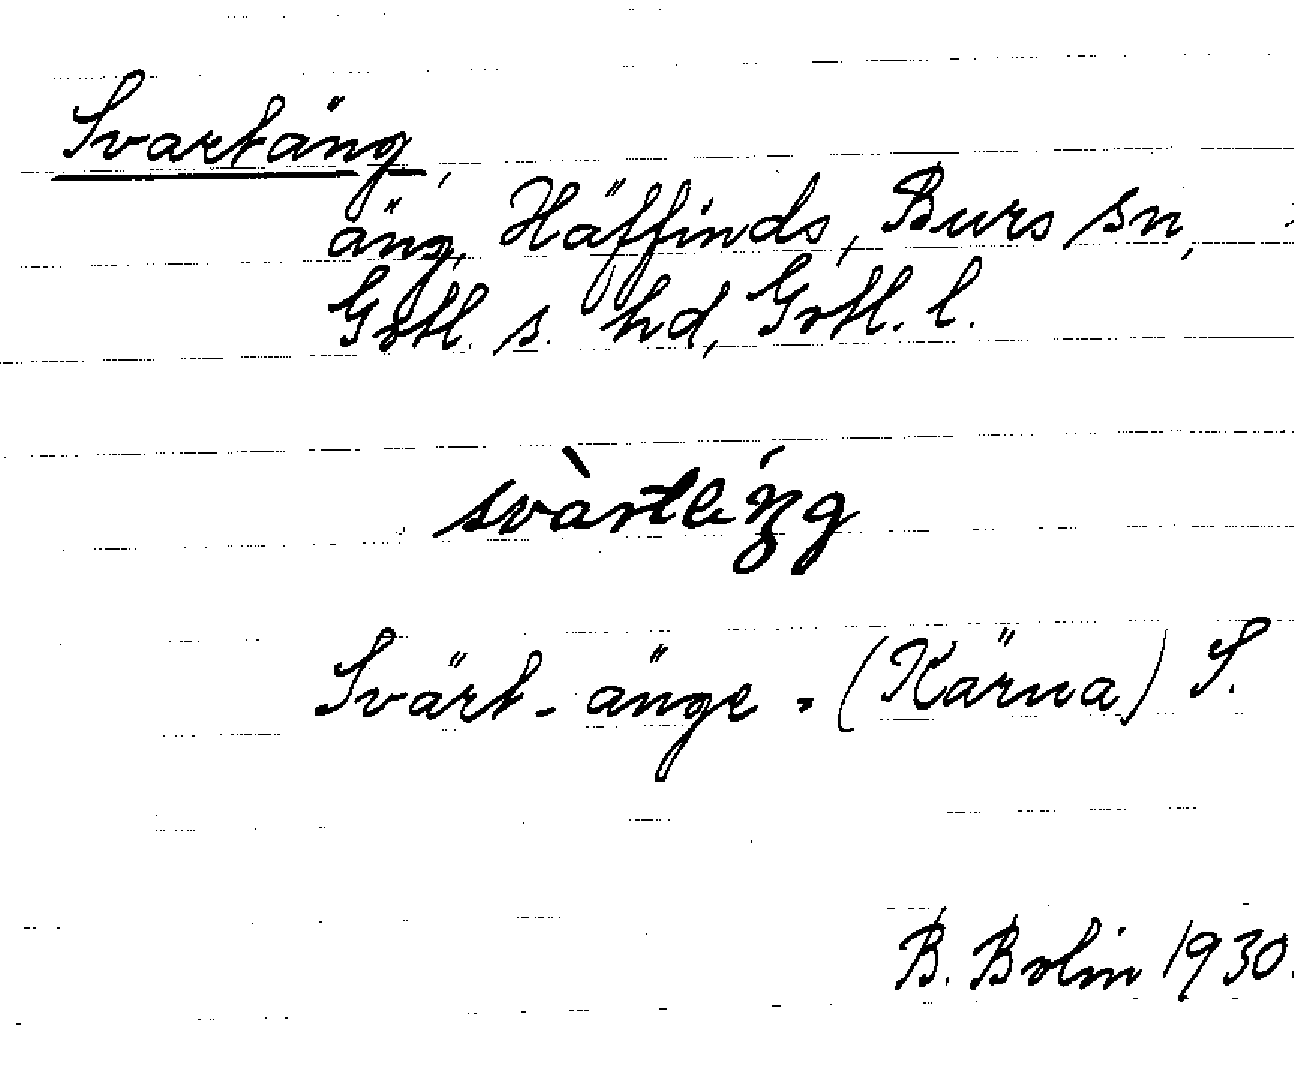 Svartäng,
äng, Häffinds, Burs sn,
Gotl. s. hd, Gotl. l.
Svärt-änge. (Kärna) S.
B. Bolin 1930.